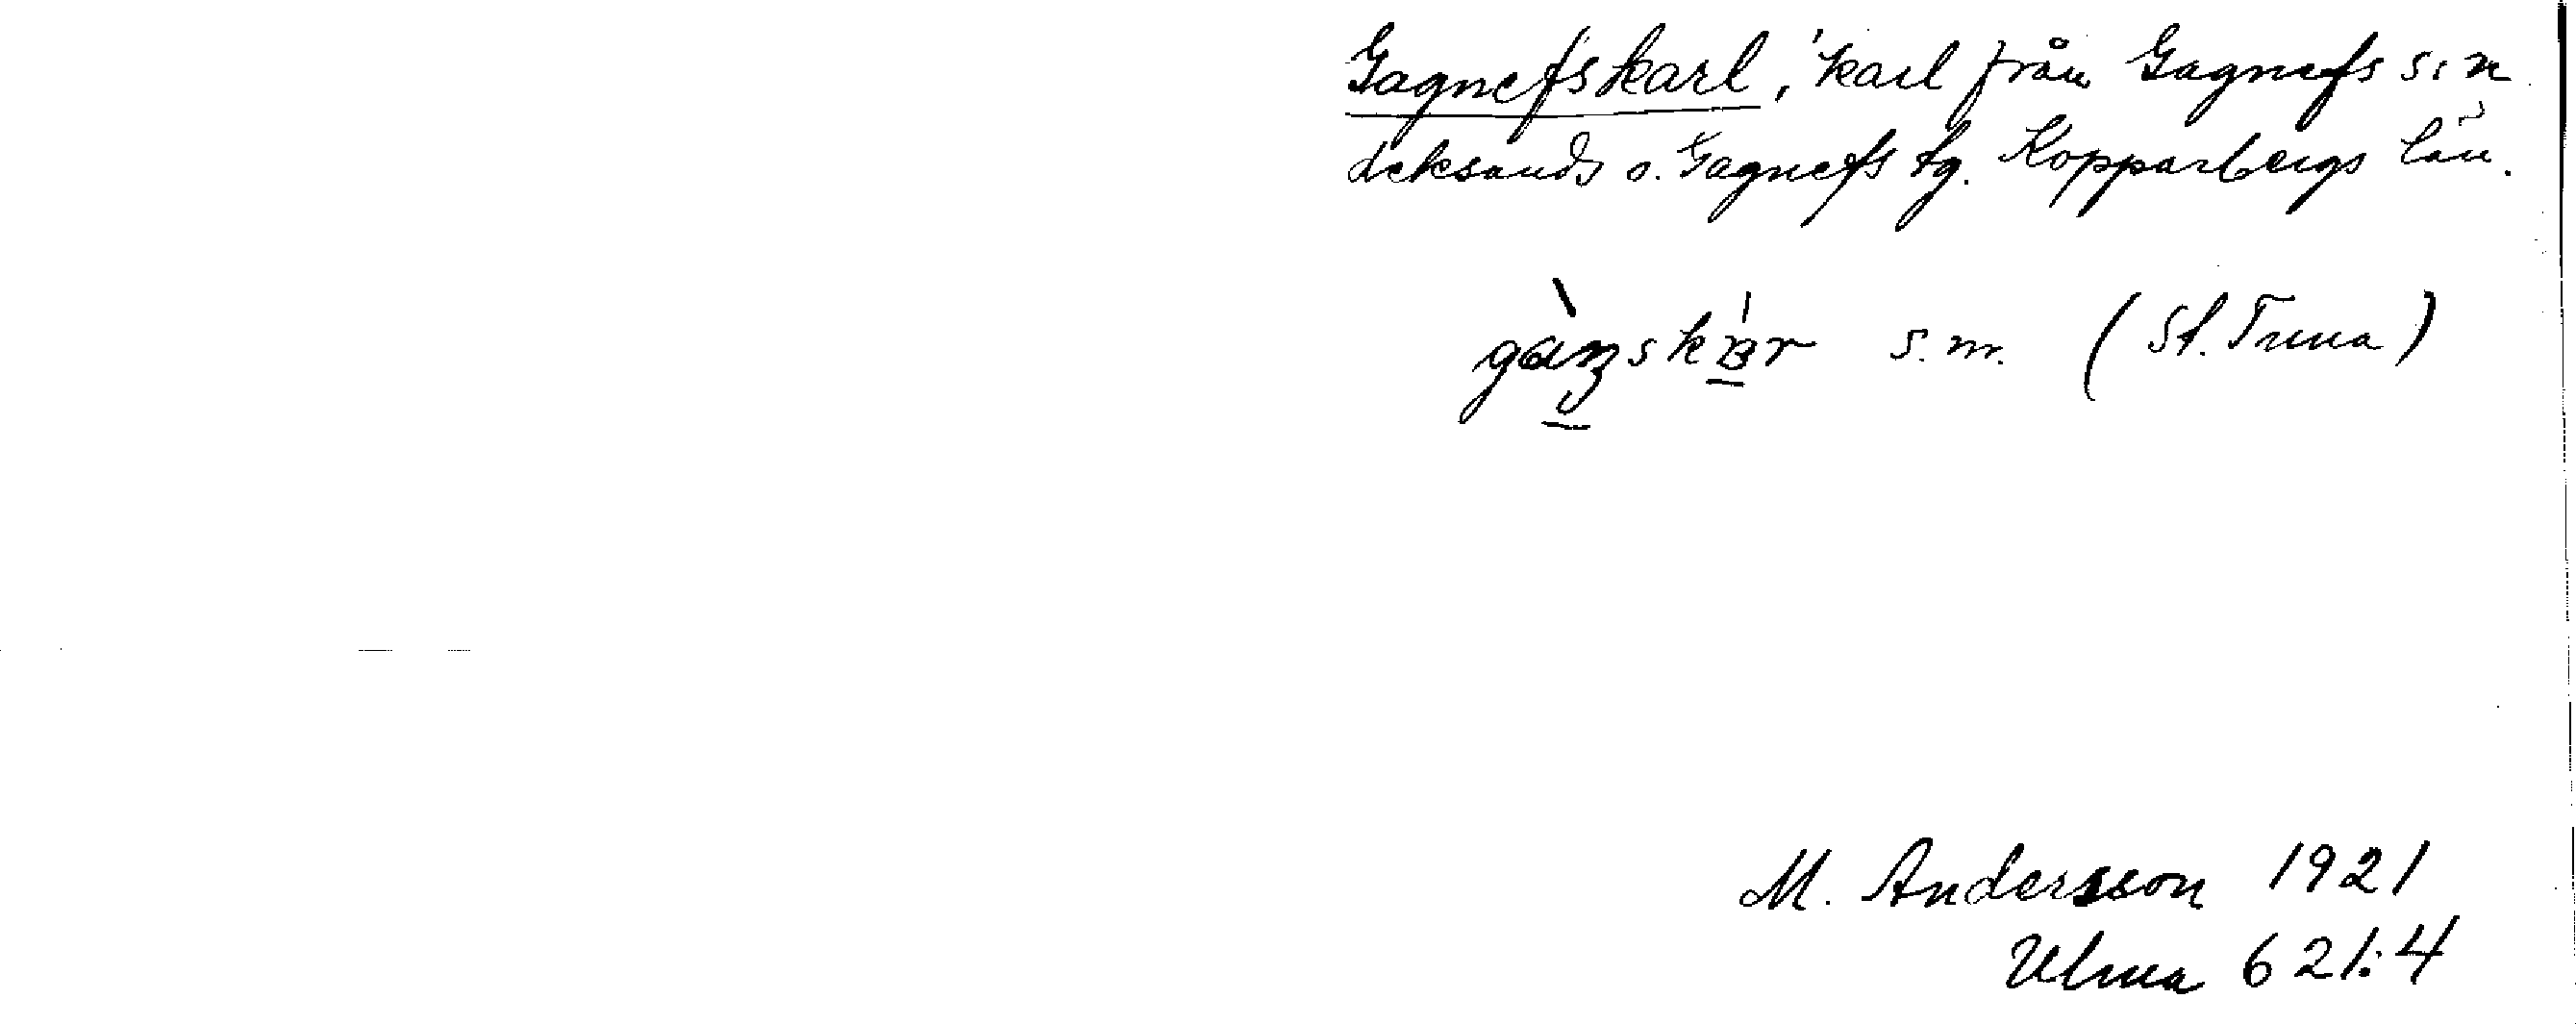 Gagnefskarl, 'karl från Gagnefs sn
Leksands o. Gagnefs tg. Kopparbergs län.'
s. m. (St. Tuna)
M. Andersson 1921
Ulma 621:4